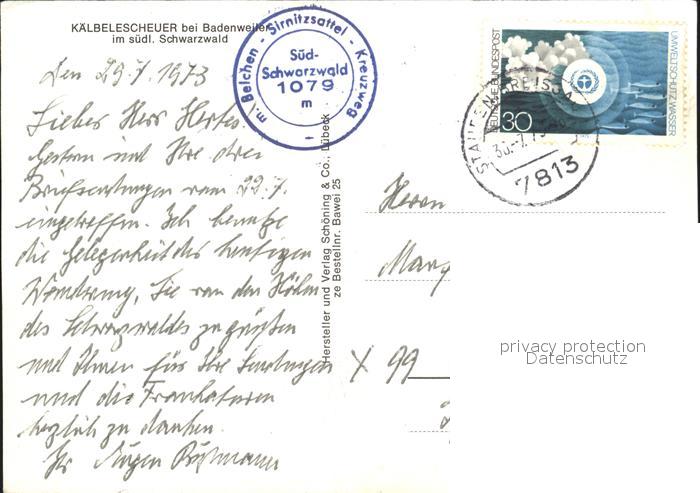 KÄLBELESCHEUER bei Badenweiler
im südl. Schwarzwald
Den 29.7.1973
Lieber Herr Hertes
Gestern sind Ihre drei
Briefsendungen vom 22.7.
eingetroffen. Ich benutze
die Gelegenheit der heutigen
Wanderung, Sie von den Höhen
des Schwarzwaldes zu grüßen
und Ihnen für Ihre Sendungen
und die Frankaturen
herzlich zu danken.
Ihr
m. Belchen - Sirnitzsattel - Kreuzweg
Süd-
Schwarzwald
1079
m
Hersteller und Verlag Schöning & Co., Lübeck
ze Bestellnr. Bawei 25
DEUTSCHE BUNDESPOST
30
UMWELTSCHUTZ WASSER
STAUFEN BREISGAU
7813
Herrn
X 99
privacy protection
Datenschutz